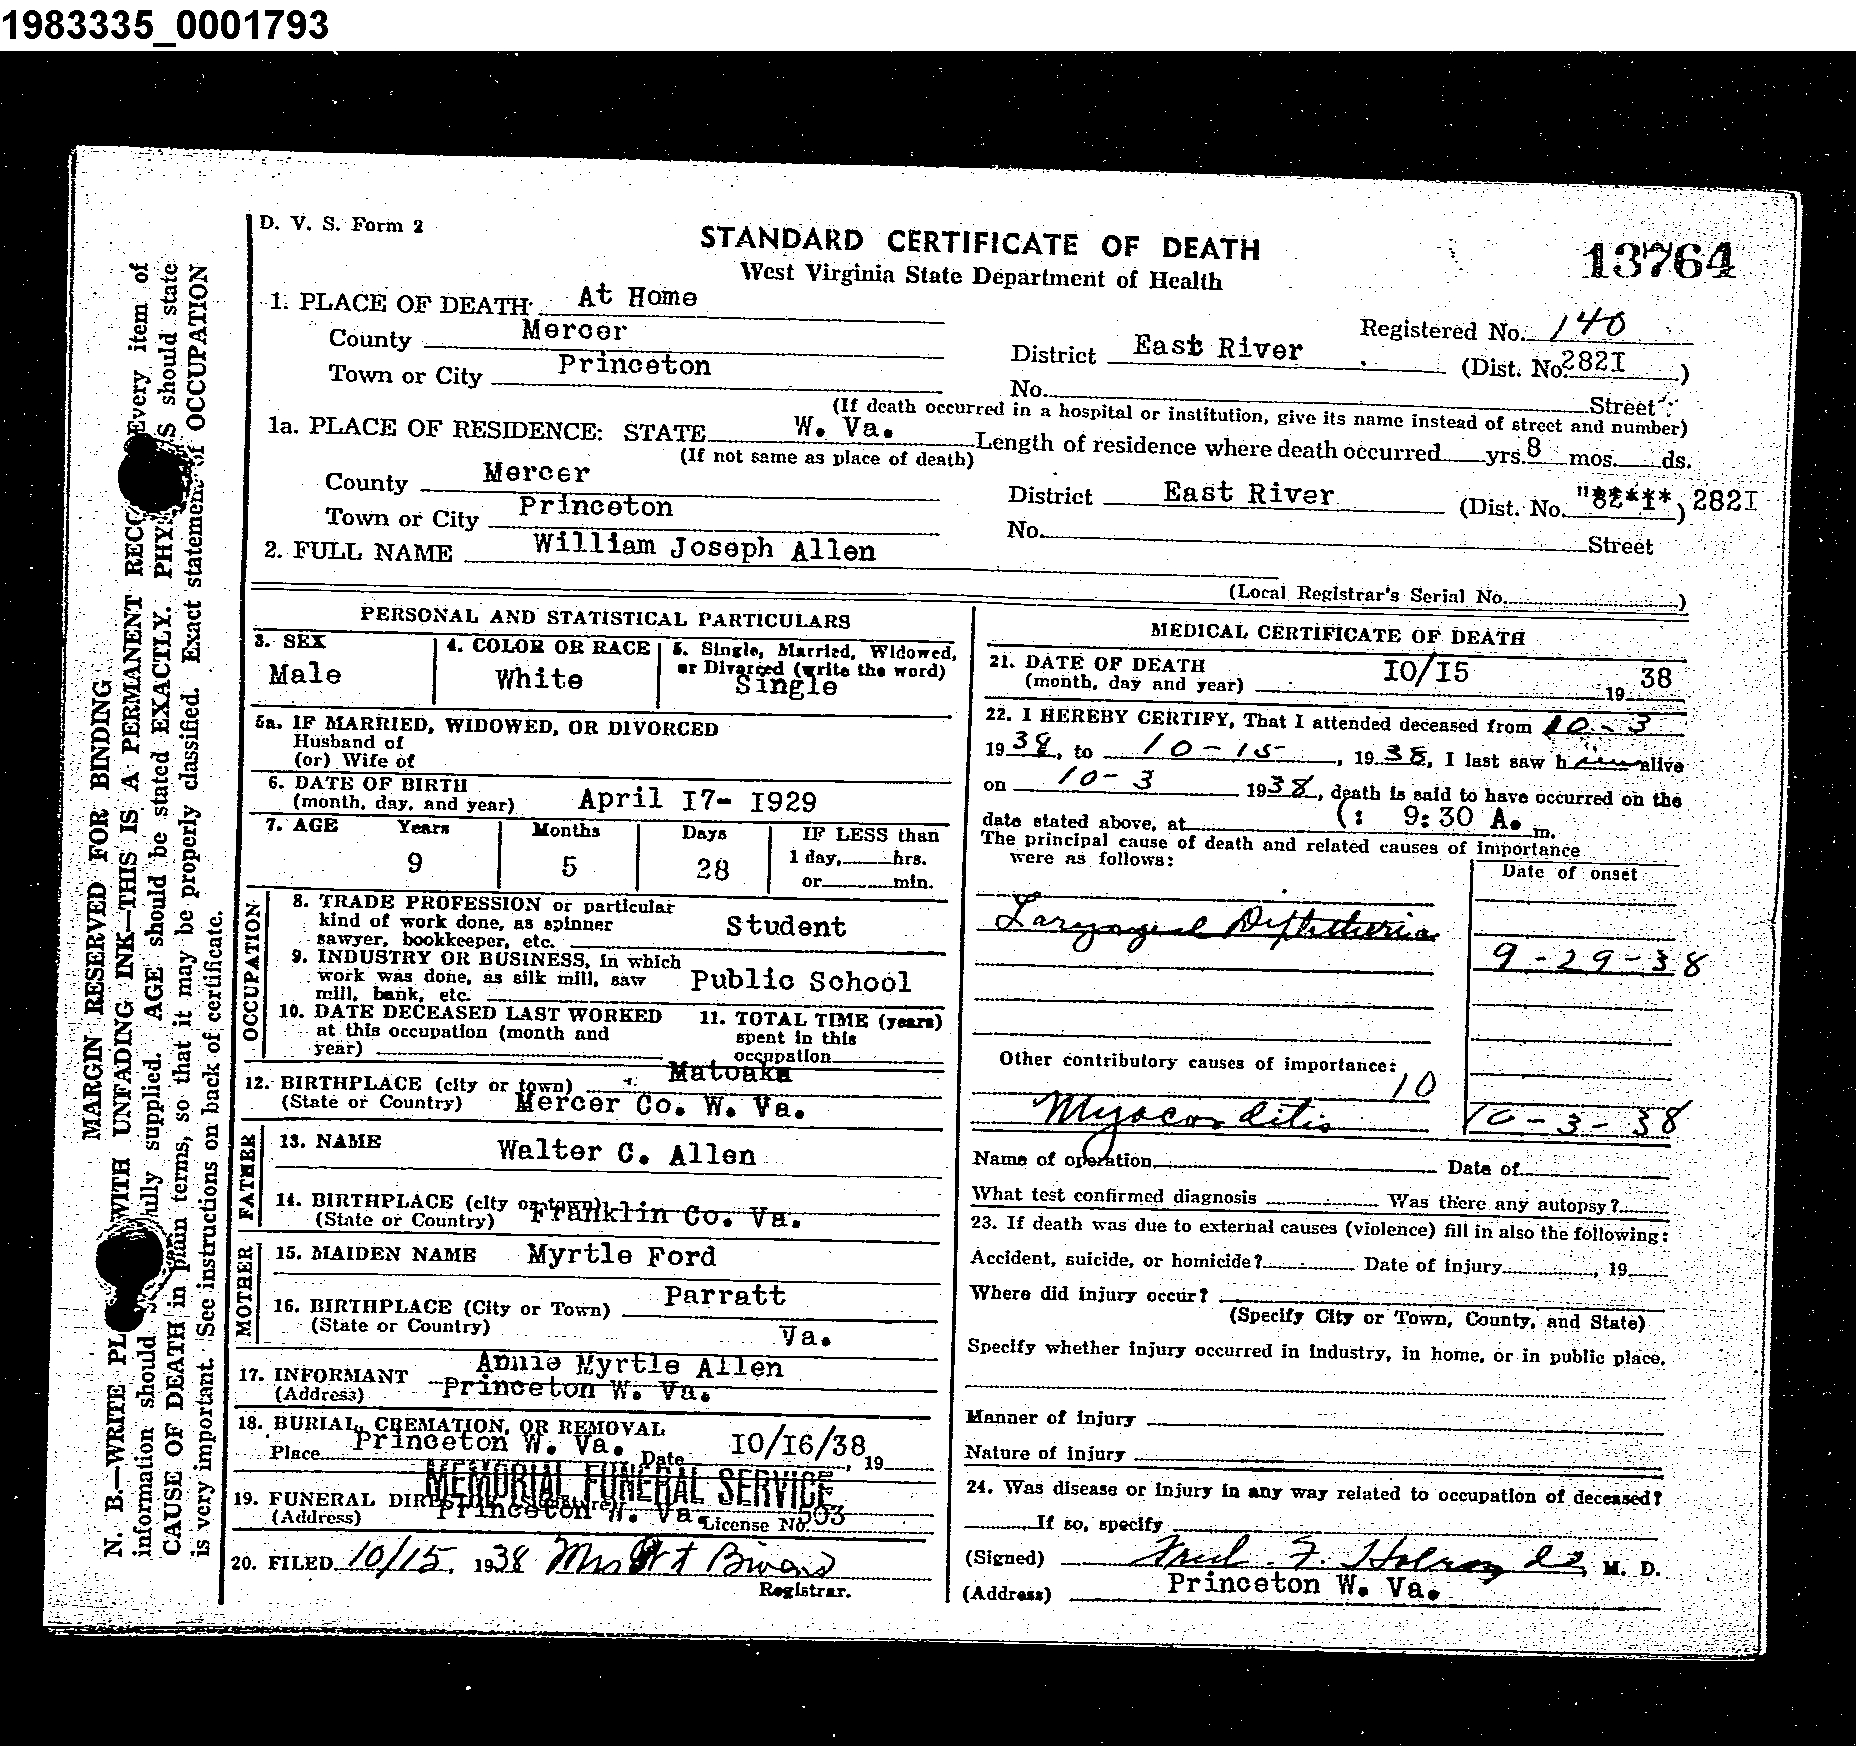 1983335_0001793
D. V. S. Form 2
STANDARD CERTIFICATE OF DEATH
13764
West Virginia State Department of Health
1. PLACE OF DEATH At Home
Registered No. 140
County Mercer
District East River (Dist. No. 282I )
Town or City Princeton
No. Street
(If death occurred in a hospital or institution, give its name instead of street and number)
1a. PLACE OF RESIDENCE: STATE W. Va. Length of residence where death occurred yrs. 8 mos. ds.
(If not same as place of death)
County Mercer
District East River (Dist. No. ) 282I
Town or City Princeton
No. Street
2. FULL NAME William Joseph Allen
(Local Registrar's Serial No. )
PERSONAL AND STATISTICAL PARTICULARS
3. SEX Male
4. COLOR OR RACE White
5. Single, Married, Widowed, or Divorced (write the word) Single
5a. IF MARRIED, WIDOWED, OR DIVORCED
Husband of
(or) Wife of
6. DATE OF BIRTH
(month, day, and year) April I7- I929
7. AGE Years Months Days IF LESS than
9 5 28 1 day, hrs.
or min.
OCCUPATION
8. TRADE PROFESSION or particular
kind of work done, as spinner Student
sawyer, bookkeeper, etc.
9. INDUSTRY OR BUSINESS, in which
work was done, as silk mill, saw Public School
mill, bank, etc.
10. DATE DECEASED LAST WORKED
at this occupation (month and
year)
11. TOTAL TIME (years)
spent in this
occupation
12. BIRTHPLACE (city or town) Matoaka
(State or Country) Mercer Co. W. Va.
FATHER
13. NAME Walter C. Allen
14. BIRTHPLACE (city or town)
(State or Country) Franklin Co. Va.
MOTHER
15. MAIDEN NAME Myrtle Ford
16. BIRTHPLACE (City or Town) Parratt
(State or Country) Va.
17. INFORMANT Annie Myrtle Allen
(Address) Princeton W. Va.
18. BURIAL, CREMATION, OR REMOVAL
Place Princeton W. Va. Date IO/I6/38, 19
MEMORIAL FUNERAL SERVICE
19. FUNERAL DIRECTOR
(Address) Princeton W. Va. License No. 503
20. FILED 10/15, 1938 Mrs
Registrar.
MEDICAL CERTIFICATE OF DEATH
21. DATE OF DEATH
(month, day and year) IO/I5 19 38
22. I HEREBY CERTIFY, That I attended deceased from 10-3
1938, to 10-15, 1938, I last saw him alive
on 10-3 1938, death is said to have occurred on the
date stated above, at (: 9:30 A. m.
The principal cause of death and related causes of importance
were as follows:
Date of onset
Laryngeal Diphtheria
9-29-38
Other contributory causes of importance:
10
Myocarditis 10-3-38
Name of operation Date of
What test confirmed diagnosis Was there any autopsy?
23. If death was due to external causes (violence) fill in also the following:
Accident, suicide, or homicide? Date of injury , 19
Where did injury occur?
(Specify City or Town, County, and State)
Specify whether injury occurred in industry, in home, or in public place.
Manner of injury
Nature of injury
24. Was disease or injury in any way related to occupation of deceased?
If so, specify
(Signed) Fred. F. M. D.
(Address) Princeton W. Va.
MARGIN RESERVED FOR BINDING
N. B.—WRITE WITH UNFADING INK—THIS IS A PERMANENT Every item of
information should supplied. AGE should be stated EXACTLY. should state
CAUSE OF DEATH in plain terms, so that it may be properly classified. Exact statement of OCCUPATION
is very important. See instructions on back of certificate.